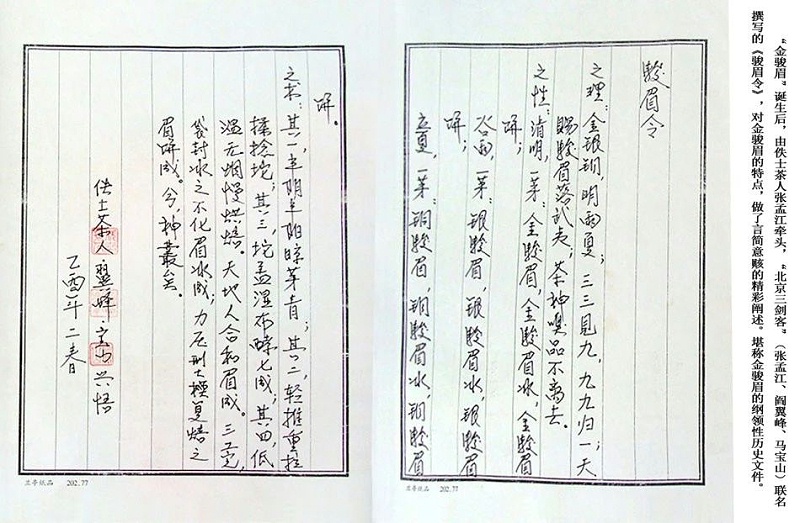 “金骏眉”诞生后，由佚士茶人张孟江牵头，“北京三剑客”（张孟江、阎翼峰、马宝山）联名
撰写的《骏眉令》，对金骏眉的特点，做了言简意赅的精彩阐述。堪称金骏眉的纲领性历史文件。
駿眉令
之理：金银铜，明雨夏；三三見九，九九归一；天
赐駿眉落武夷；茶神嗅品不离去。
之性：清明，一芽：金駿眉，金駿眉冰，金駿眉
饼；
谷雨，一芽：银駿眉，银駿眉冰，银駿眉
饼；
立夏，一芽：铜駿眉，铜駿眉冰，铜駿眉
饼。
之术：其一，半阴半阳晾芽青；其二，轻推重拉
揉捻坨；其三，坨盖湿布酵七成；其四，低
温无烟慢烘焙。天地人合和眉成。三工完，
袋封冰之不化眉冰成；力压型七模夏焙之
眉饼成。兮，神叢矣。
佚士茶人·翼峰·宝山 兴悟
乙酉年二春
兰亭纸品 202.77
兰亭纸品 202.77